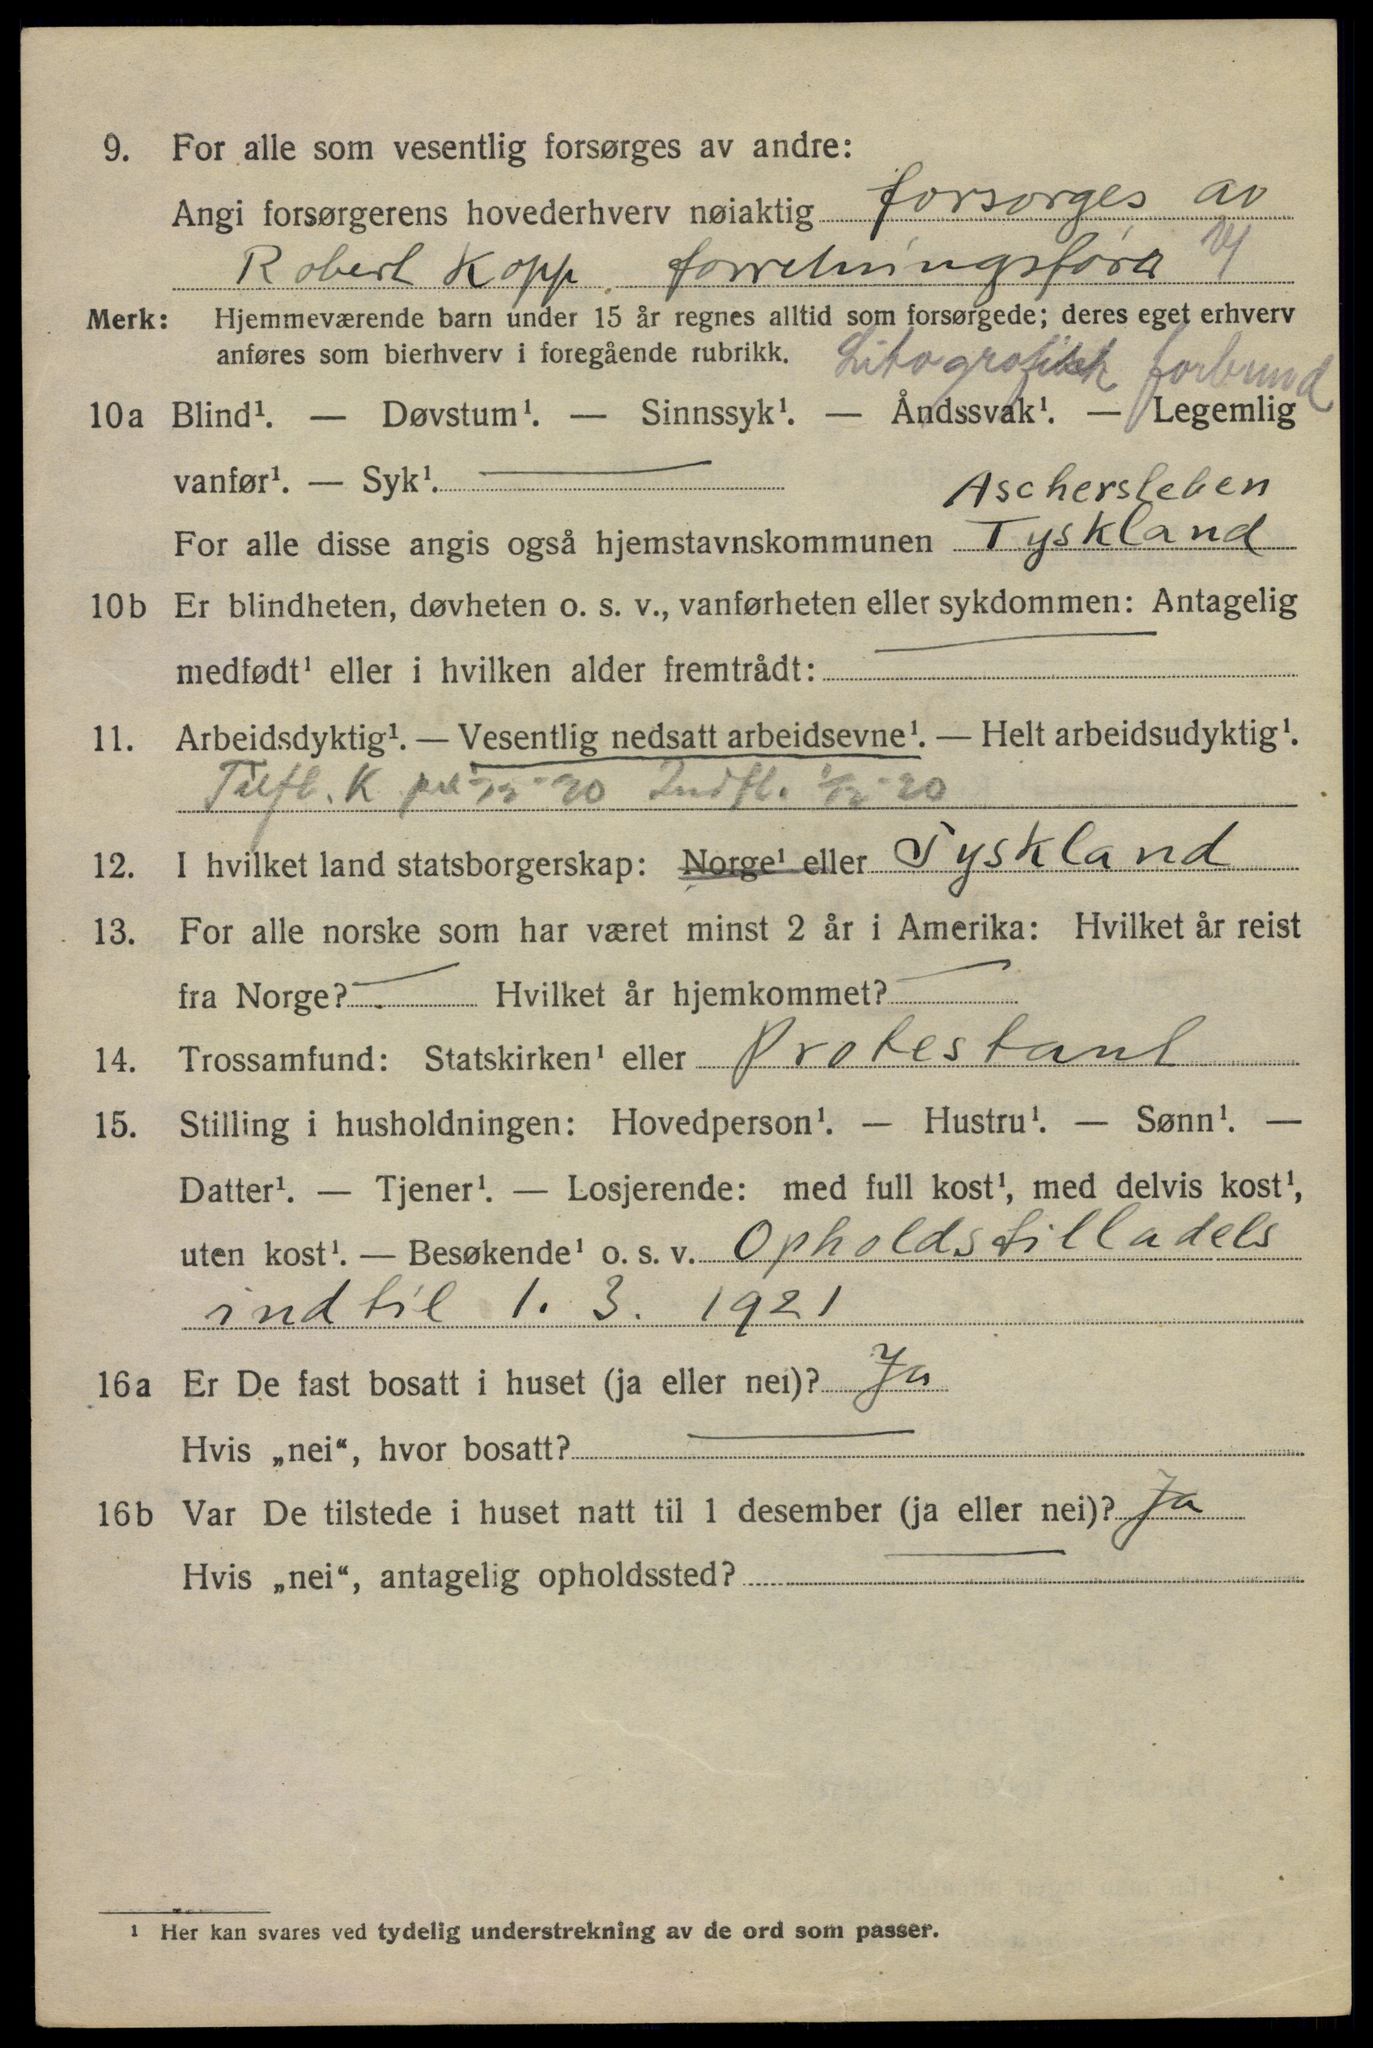 9. For alle som vesentlig forsørges av andre:
Angi forsørgerens hovederhverv nøiaktig forsorges av
Robert Kopp forretningsfører
Merk: Hjemmeværende barn under 15 år regnes alltid som forsørgede; deres eget erhverv
anføres som bierhverv i foregående rubrikk. Litografisk forbund
10a Blind¹. — Døvstum¹. — Sinnssyk¹. — Åndssvak¹. — Legemlig
vanfør¹. — Syk¹.
Aschersleben
For alle disse angis også hjemstavnskommunen Tyskland
10b Er blindheten, døvheten o. s. v., vanførheten eller sykdommen: Antagelig
medfødt¹ eller i hvilken alder fremtrådt:
11. Arbeidsdyktig¹. — Vesentlig nedsatt arbeidsevne¹. — Helt arbeidsudyktig¹.
Tilfl. K Indfl. 1/12-20
12. I hvilket land statsborgerskap: Norge¹ eller Tyskland
13. For alle norske som har været minst 2 år i Amerika: Hvilket år reist
fra Norge? Hvilket år hjemkommet?
14. Trossamfund: Statskirken¹ eller Protestant
15. Stilling i husholdningen: Hovedperson¹. — Hustru¹. — Sønn¹. —
Datter¹. — Tjener¹. — Losjerende: med full kost¹, med delvis kost¹,
uten kost¹. — Besøkende¹ o. s. v. Opholdstilladels
indtil 1. 3. 1921
16a Er De fast bosatt i huset (ja eller nei)? Ja
Hvis „nei“, hvor bosatt?
16b Var De tilstede i huset natt til 1 desember (ja eller nei)? Ja
Hvis „nei“, antagelig opholdssted?
¹ Her kan svares ved tydelig understrekning av de ord som passer.